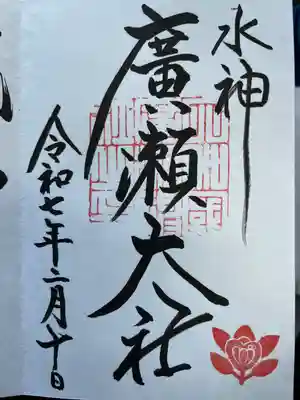 水神
廣瀬大社
令和七年二月十日